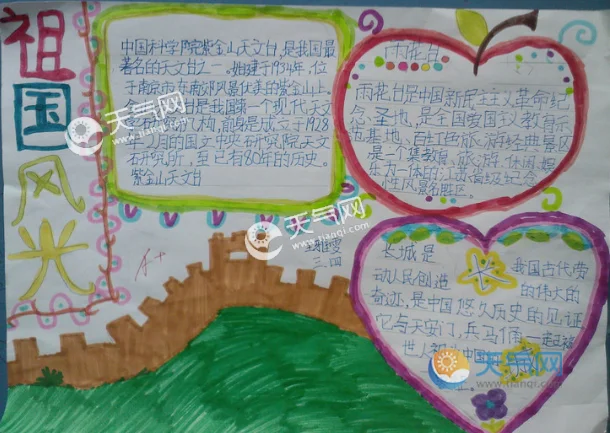 祖国风光
中国科学院紫金山天文台,是我国最
著名的天文台之一。始建于1934年,位
于南京市东南郊风景优美的紫金山上。
是我国第一个现代天文
机构,前身是成立于1928
年2月的国立中央研究院天文
研究所,至今已有80年的历史。
紫金山天文台
雨花台
雨花台是中国新民主主义革命纪
念圣地,是全国爱国主义教育示
范基地,百红色旅游经典景区
是一个集教育、旅游、休闲、娱
乐为一体的江苏省级纪念
性风景名胜区。
A+
三、四
长城是我国古代劳
动人民创造的伟大的
奇迹,是中国悠久历史的见证
它与天安门,兵马俑一起被
世人视为中国
天气网
www.tianqi.com
天气网
www.tianqi.com
天气网
www.tianqi.com
天气网
www.tianqi.com